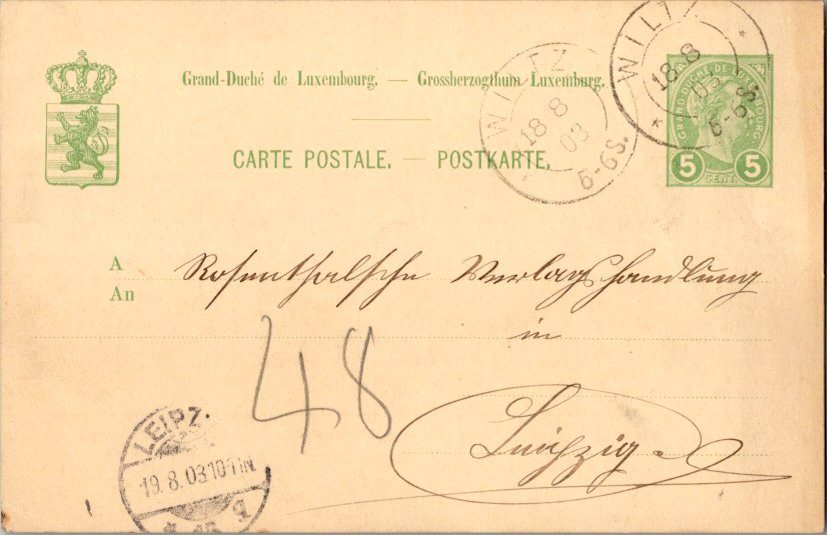 Grand-Duché de Luxembourg. — Grossherzogthum Luxemburg.
CARTE POSTALE. — POSTKARTE.
WILTZ
18 8
03
5-6S.
WILTZ
18 8
03
5-6S.
GRAND DUCHÉ DE LUXEMBOURG
5 CENT. 5
A
An
Rosenthalsche Verlagshandlung
in
Leipzig.
48
LEIPZ.
19.8.03.10-11N.